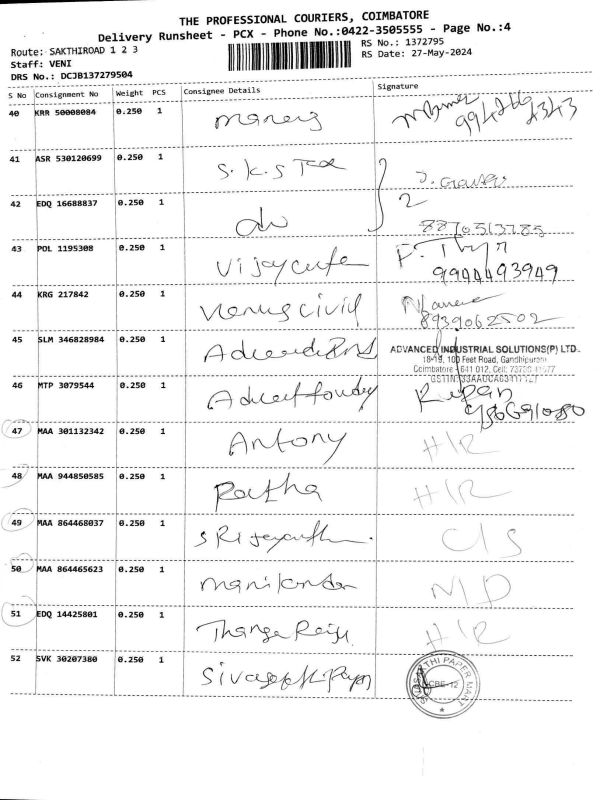 THE PROFESSIONAL COURIERS, COIMBATORE
Delivery Runsheet - PCX - Phone No.:0422-3505555 - Page No.:4
Route: SAKTHIROAD 1 2 3
RS No.: 1372795
Staff: VENI
RS Date: 27-May-2024
DRS No.: DCJB137279504
S No Consignment No Weight PCS Consignee Details Signature
40 KRR 50008084 0.250 1
41 ASR 530120699 0.250 1 S.K.S Tex
42 EDQ 16688837 0.250 1 do 2
8870513785
43 POL 1195308 0.250 1 Vijay cafe
9944493949
44 KRG 217842 0.250 1 Venus civil
8939062502
45 SLM 346828984 0.250 1 ADVANCED INDUSTRIAL SOLUTIONS(P) LTD.
18-19, 100 Feet Road, Gandhipuram
Coimbatore - 641 012, Cell:
46 MTP 3079544 0.250 1
47 MAA 301132342 0.250 1 Antony H/R
48 MAA 944850585 0.250 1 Rattha H/R
49 MAA 864468037 0.250 1 SRI C/S
50 MAA 864465623 0.250 1 manikandan ND
51 EDQ 14425801 0.250 1 H/R
52 SVK 30207380 0.250 1 SIVASAKTHI PAPER MART
CBE-12